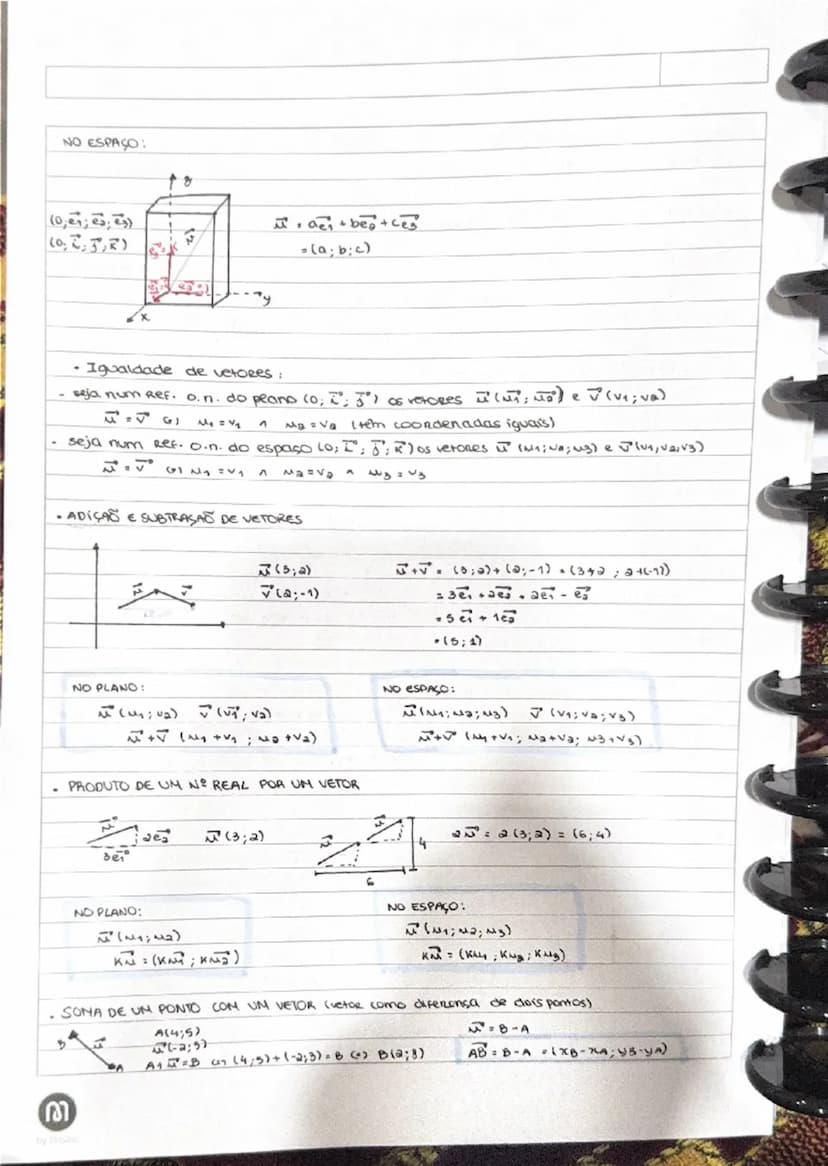 NO ESPAÇO:
z
(0, e₁⃗; e₂⃗; e₃⃗)
u⃗ = ae₁⃗ + be₂⃗ + ce₃⃗
(0; i⃗; j⃗; k⃗)
= (a; b; c)
u⃗
y
x
• Igualdade de vetores:
- seja num REF. o.n. do plano (0; i⃗; j⃗) os vetores u⃗ (u₁⃗; u₂⃗) e v⃗ (v₁; v₂)
u⃗ = v⃗ (=) u₁ = v₁ ∧ u₂ = v₂ (têm coordenadas iguais)
- seja num REF. o.n. do espaço (0; i⃗; j⃗; k⃗) os vetores u⃗ (u₁; u₂; u₃) e v⃗ (v₁, v₂, v₃)
u⃗ = v⃗ (=) u₁ = v₁ ∧ u₂ = v₂ ∧ u₃ = v₃
• ADIÇÃO E SUBTRAÇÃO DE VETORES
u⃗ v⃗
u⃗ (3; 2)
u⃗ + v⃗ = (3; 2) + (2; -1) = (3+2 ; 2+(-1))
v⃗ (2; -1)
= 3e₁⃗ + 2e₂⃗ + 2e₁⃗ - e₂⃗
= 5e₁⃗ + 1e₂⃗
= (5; 1)
NO PLANO:
u⃗ (u₁; u₂) v⃗ (v₁⃗; v₂)
u⃗ + v⃗ (u₁ + v₁ ; u₂ + v₂)
NO ESPAÇO:
u⃗ (u₁; u₂; u₃) v⃗ (v₁; v₂; v₃)
u⃗ + v⃗ (u₁ + v₁; u₂ + v₂; u₃ + v₃)
• PRODUTO DE UM Nº REAL POR UM VETOR
u⃗ 2e₂⃗
3e₁⃗
u⃗ (3; 2)
u⃗ u⃗ 4
6
2u⃗ = 2(3; 2) = (6; 4)
NO PLANO:
u⃗ (u₁; u₂)
ku⃗ = (ku₁⃗; ku₂⃗)
NO ESPAÇO:
u⃗ (u₁; u₂; u₃)
ku⃗ = (ku₁; ku₂; ku₃)
• SOMA DE UM PONTO COM UM VETOR (vetor como diferença de dois pontos)
B u⃗ A
A(4; 5)
u⃗ (-2; 3)
A + u⃗ = B (=) (4; 5) + (-2; 3) = B (=) B(2; 8)
u⃗ = B - A
AB⃗ = B - A = (xB - xA; yB - yA)